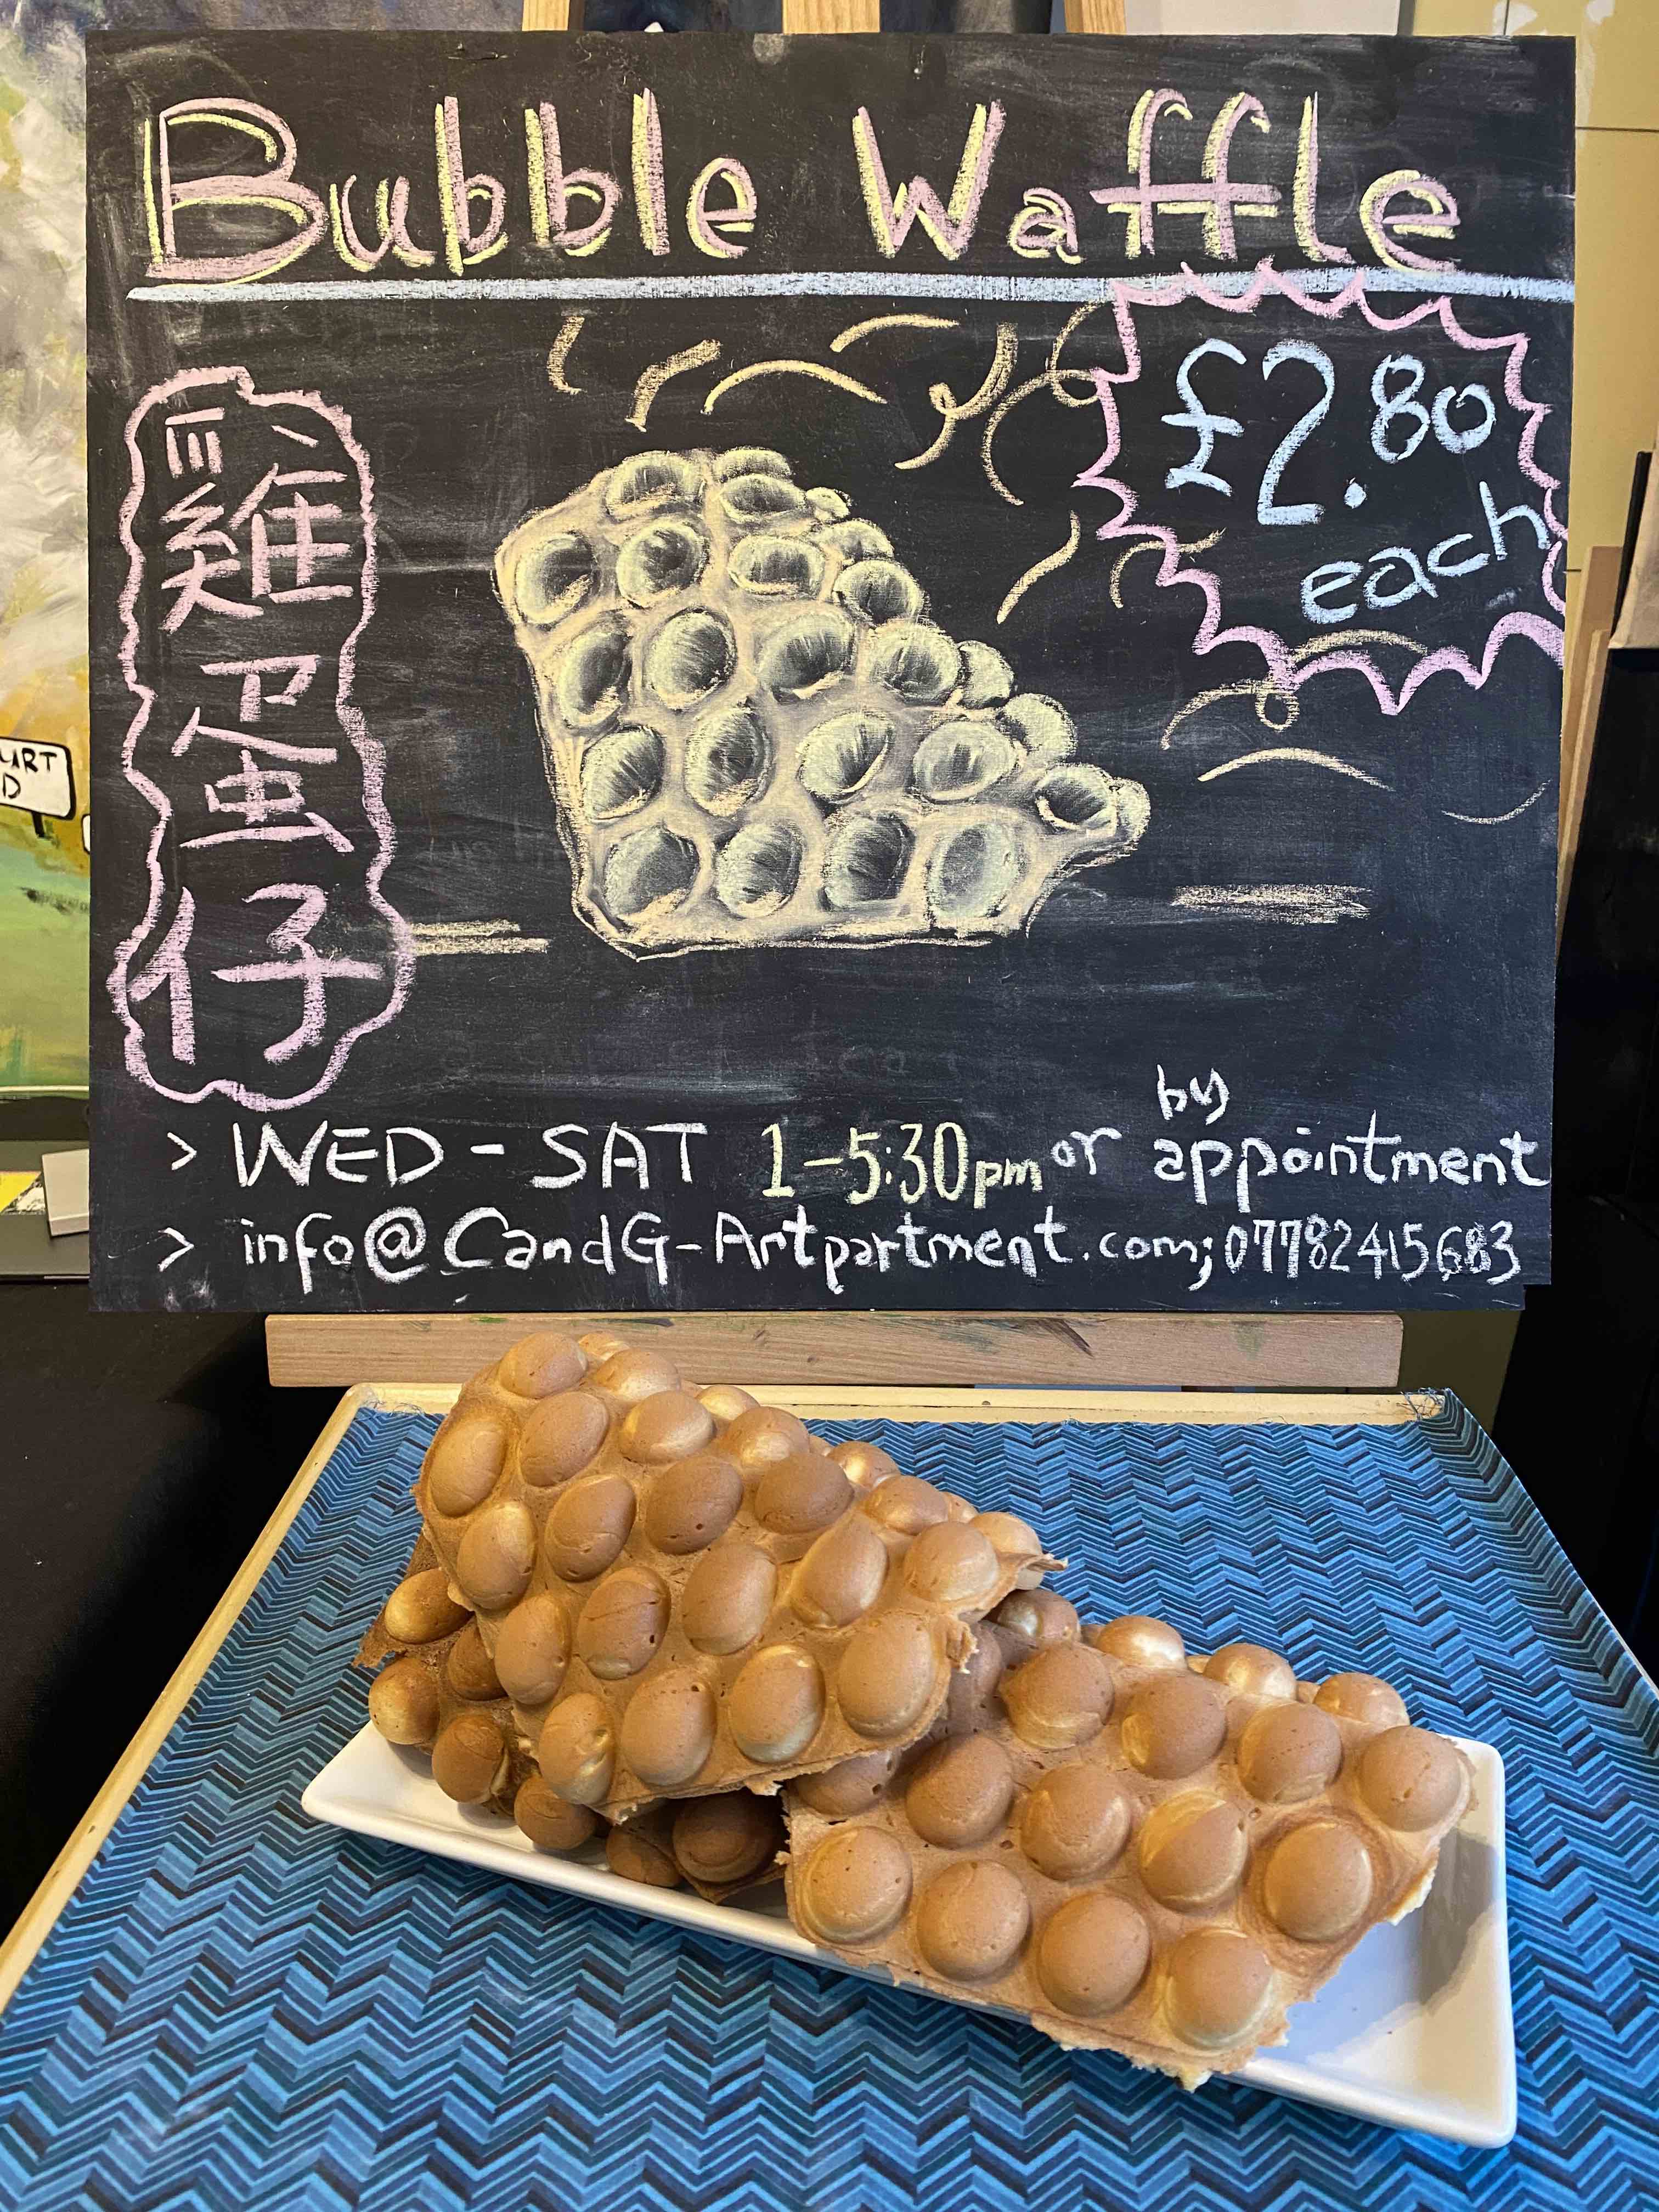 Bubble Waffle
£2.80
each
雞
蛋
仔
URT
D
> WED - SAT 1-5:30pm or by appointment
> info@CandG-Artpartment.com; 07782415683